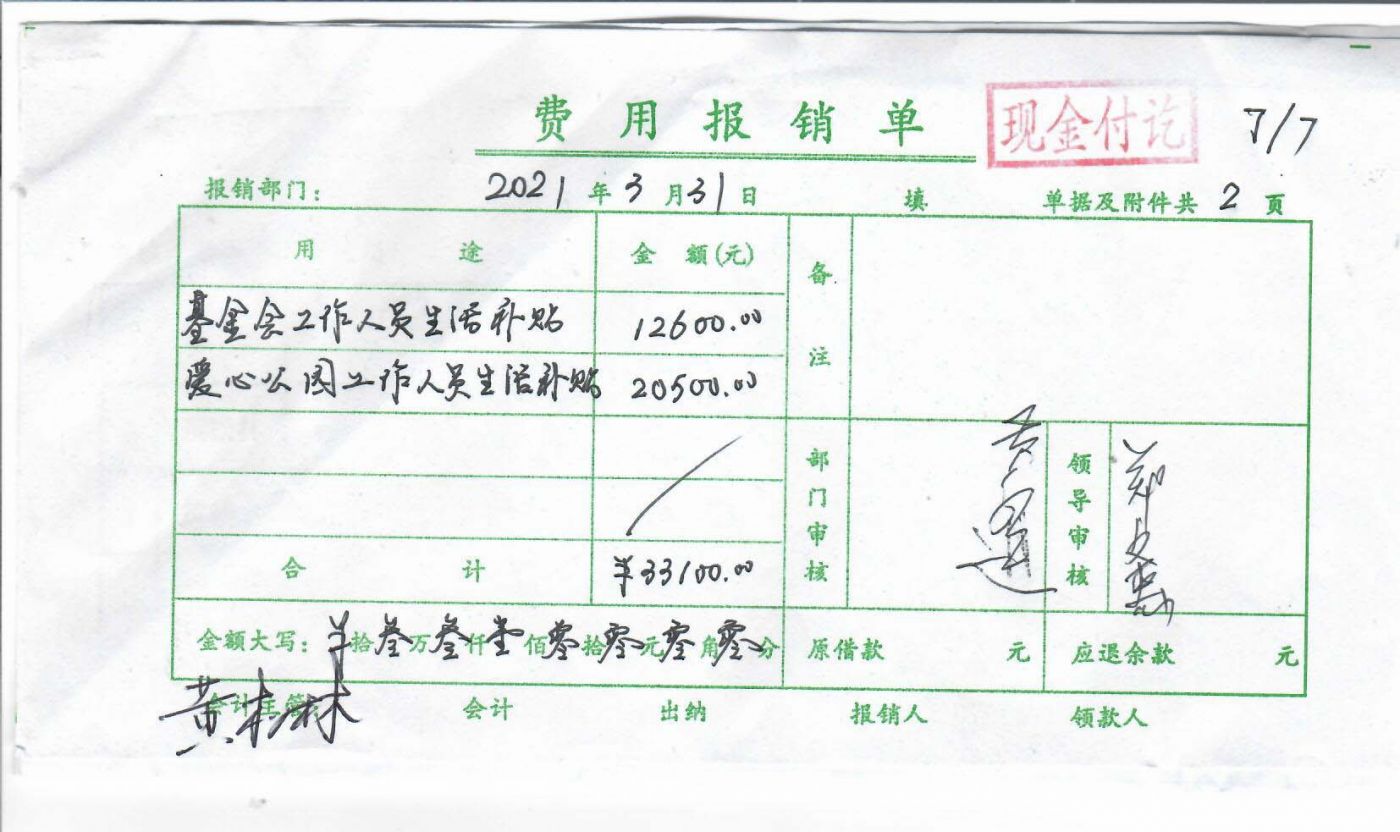 费用报销单 现金付讫 7/7
报销部门： 2021年3月31日 填 单据及附件共 2 页
用途 金额(元) 备注
基金会工作人员生活补贴 12600.00
爱心公园工作人员生活补贴 20500.00
部门审核 领导审核
合计 ¥33100.00
金额大写：¥拾叁万叁仟壹佰零拾零元零角零分 原借款 元 应退余款 元
会计主管： 会计 出纳 报销人 领款人